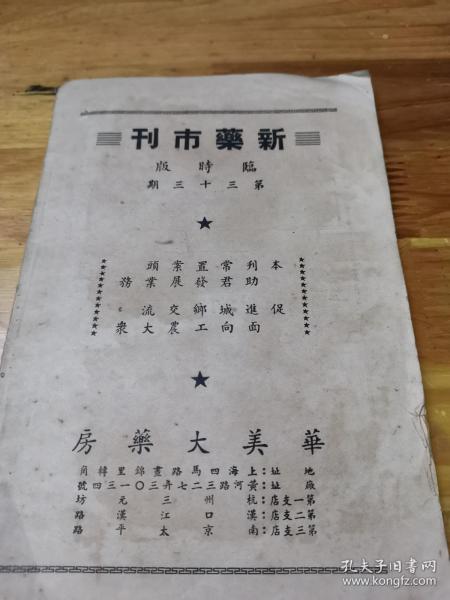 新藥市刊
臨時版
第三十三期
本刊常置案頭
助君發展業務
促進城鄉交流。
面向工農大衆
華美大藥房
地址:上海四馬路晝錦里轉角
廠址:黃河路三二七弄三〇一三四號
第一支店:杭州三元坊
第二支店:漢口江漢路
第三支店:南京太平路
孔夫子旧书网
www.kongfz.com